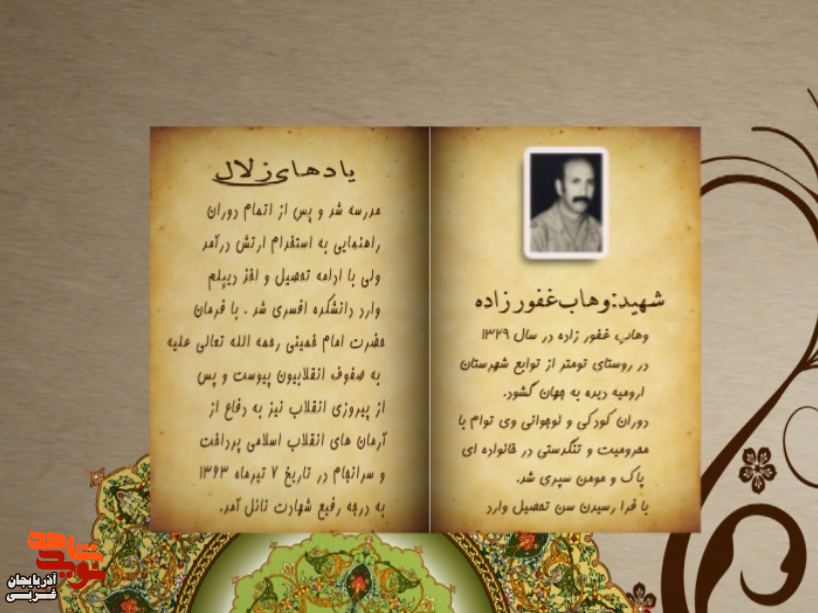 شهید:وهاب غفورزاده
وهاب غفور زاده در سال ۱۳۲۹
در روستای تومتر از توابع شهرستان
ارومیه دیده به جهان گشود.
دوران کودکی و نوجوانی وی توام با
محرومیت و تنگدستی در خانواده ای
پاک و مومن سپری شد.
با فرا رسیدن سن تحصیل وارد
یادهای زلال
مدرسه شد و پس از اتمام دوران
راهنمایی به استخدام ارتش درآمد
ولی با ادامه تحصیل و اخذ دیپلم
وارد دانشکده افسری شد . با فرمان
حضرت امام خمینی رحمه الله تعالی علیه
به صفوف انقلابیون پیوست و پس
از پیروزی انقلاب نیز به دفاع از
آرمان های انقلاب اسلامی پرداخت
و سرانجام در تاریخ ۷ تیرماه ۱۳۶۳
به درجه رفیع شهادت نائل آمد.
نوید شاهد
آذربایجان
غربی